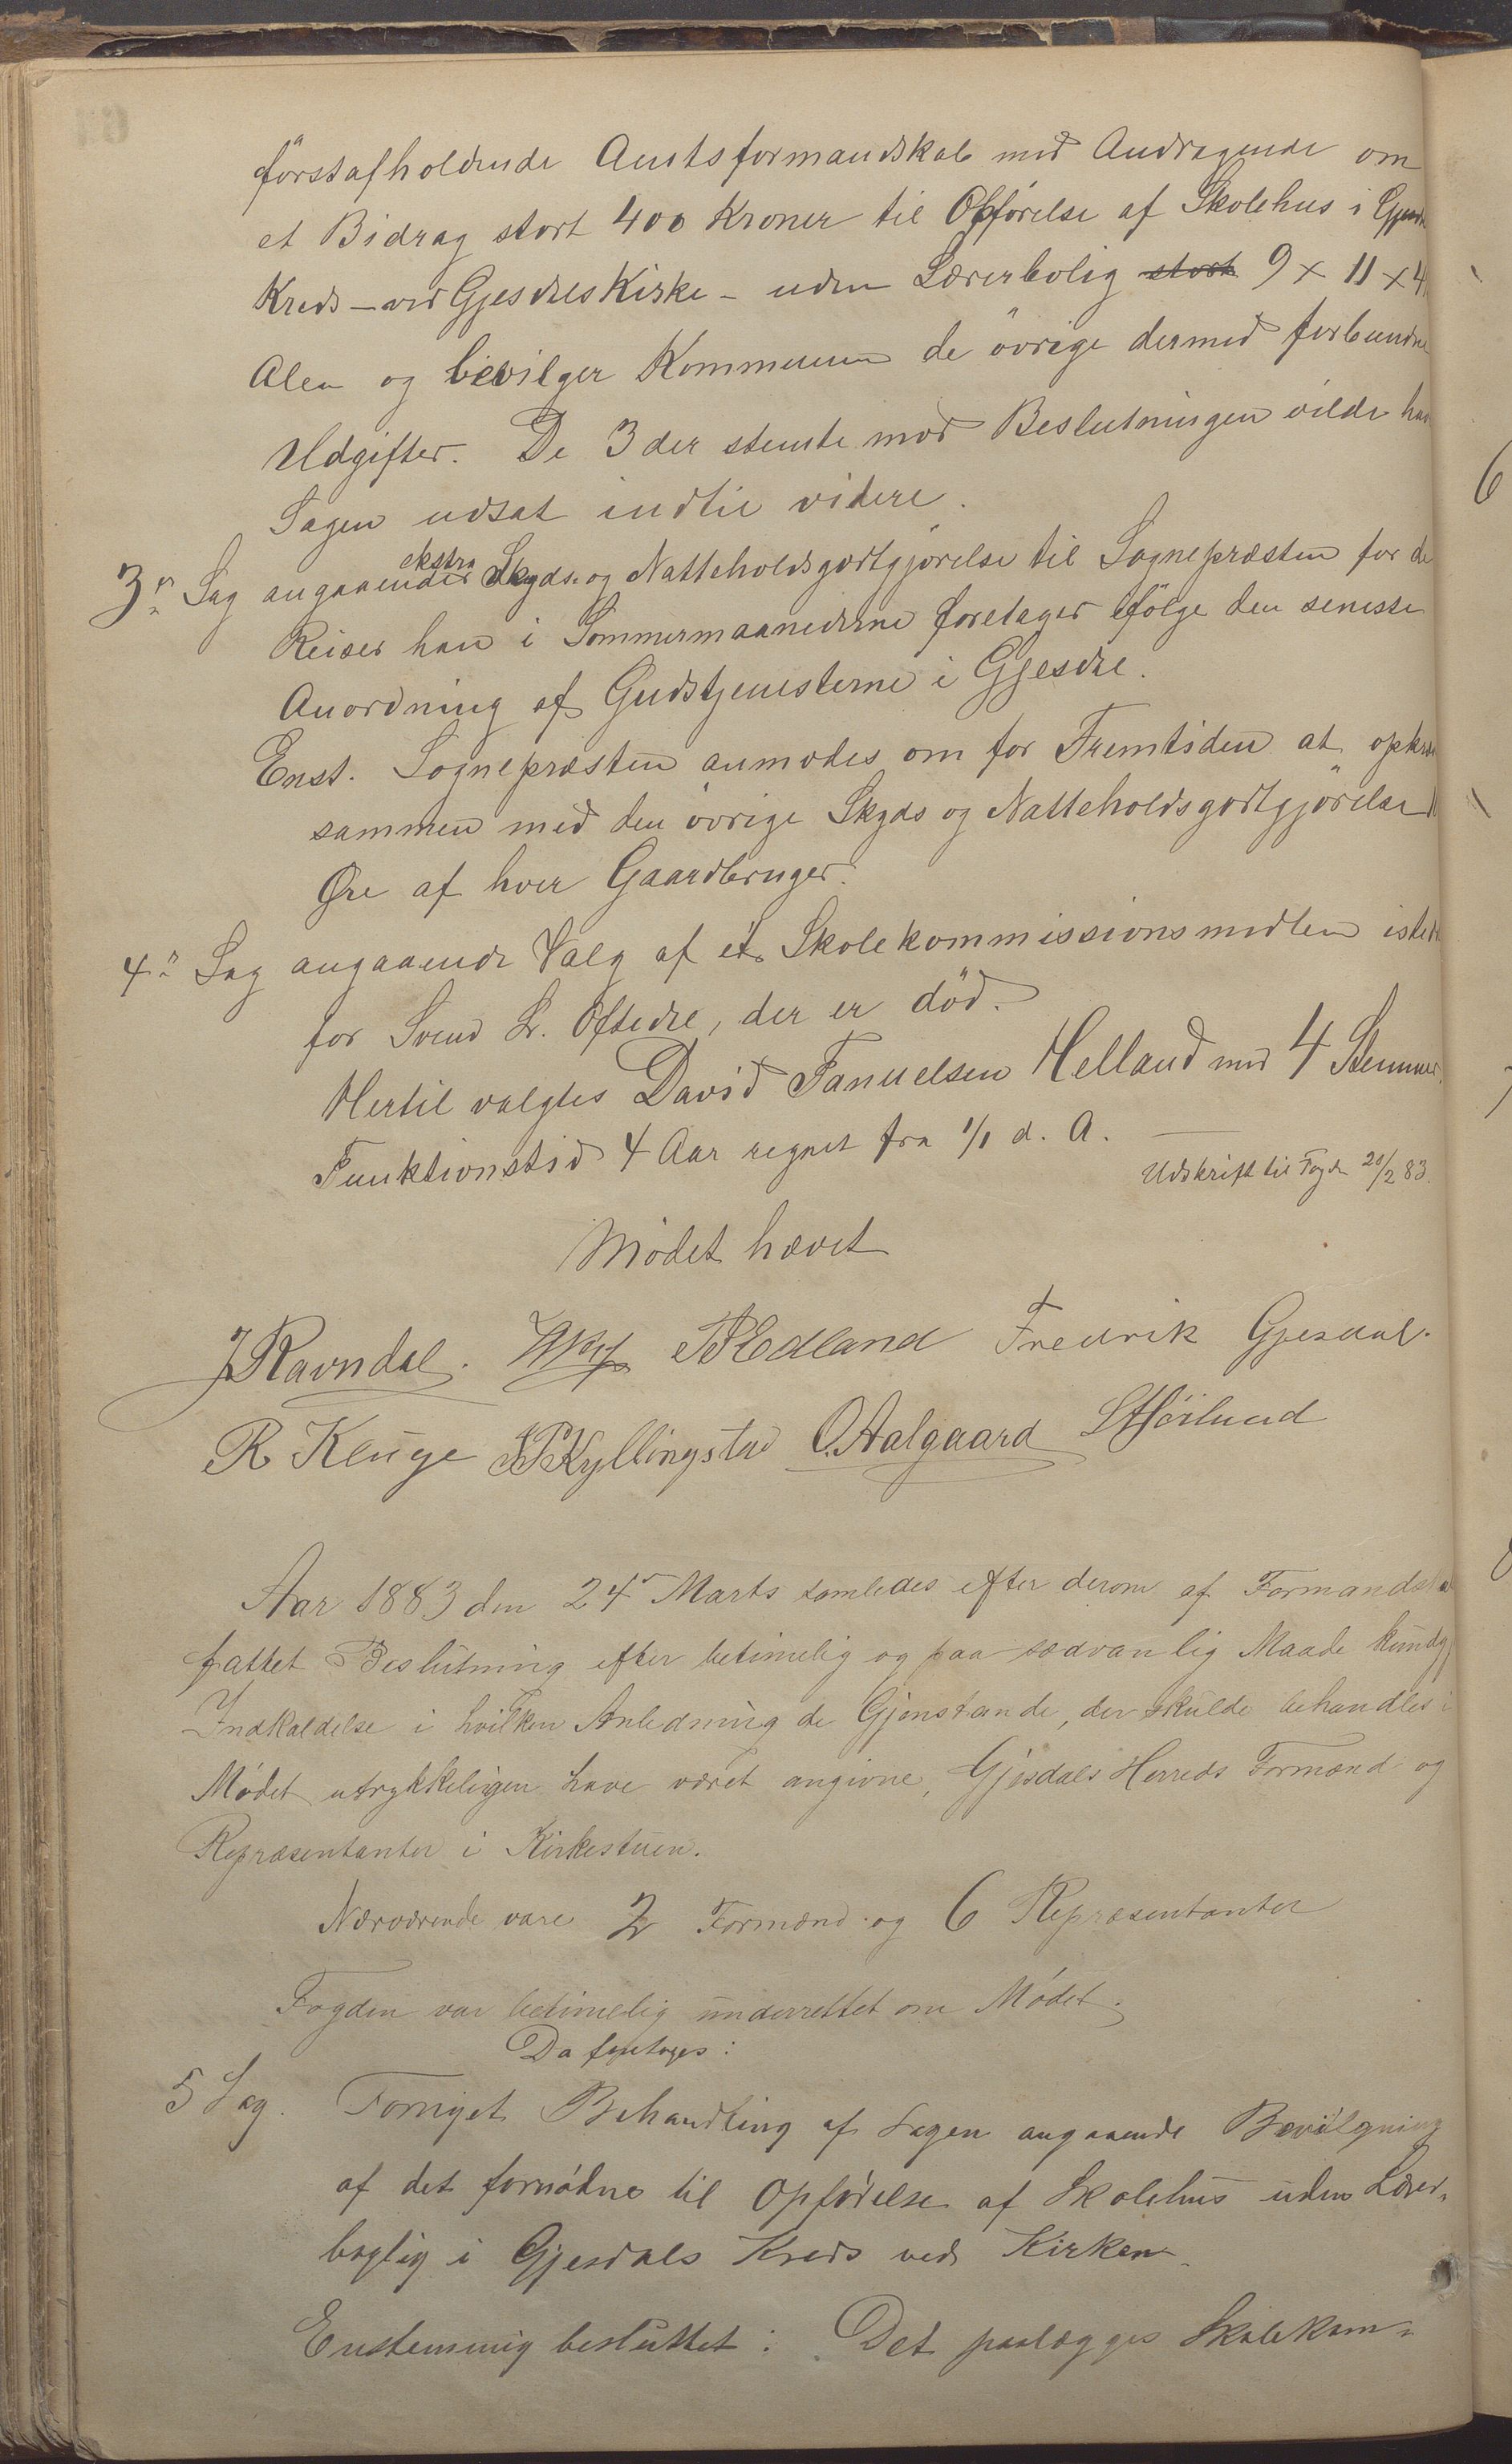 förstafholdende Amtsformandskab med Andragende om
et Bidrag stort 400 Kroner til Opförelse af Skolehus i
Kreds - ved Gjesdals Kirke - uden Lærerbolig stort 9 x 11 x 4
Alen og bevilger Kommunen de övrige dermed forbundne
Udgifter. De 3 der stemte mod Beslutningen vilde have
Sagen udsat indtil videre.
3. Sag angaaende ekstra Skyds- og Natteholdsgodtgjörelse til Sognepræsten for de
Reiser han i Sommermaanederne foretager ifölge den seneste
Anordning af Gudstjenesterne i Gjesdal.
Enst. Sognepræsten anmodes om for Fremtiden at
sammen med den övrige Skyds og Natteholdsgodtgjörelse
Øre af hver Gaardbruger.
4. Sag angaaende Valg af et Skolekommissionsmedlem
for Svend L. Oftedal, der er död.
Hertil valgtes David Fanuelsen Helland med 4 Stemmer.
Funktionstid 4 Aar regnet fra 1/1 d. A.
Udskrift til Fogden 20/2 83.
Mödet hævet
J Ravndal. Edland Fredrik Gjesdal.
R Kluge Kyllingstad O. Aalgaard
Aar 1883 den 24 Marts samledes efter derom af
fattet Beslutning efter betimelig og paa sædvanlig Maade
Indkaldelse i hvilken Anledning de Gjenstande, der skulde behandles i
Mödet utrykkeligen have været angivne, Gjesdals Herreds Formænd og
Repræsentanter i Kirkestuen.
Nærværende vare 2 Formænd og 6 Repræsentanter
Fogden var betimelig underrettet om Mödet.
Da foretoges:
5 Sag. Fornyet Behandling af Sagen angaaende Bevilgning
af det fornödne til Opförelse af Skolehus uden Lærer-
boglig i Gjesdals Kreds ved Kirken.
Enstemmig besluttet: Det paalægges Skolekom-